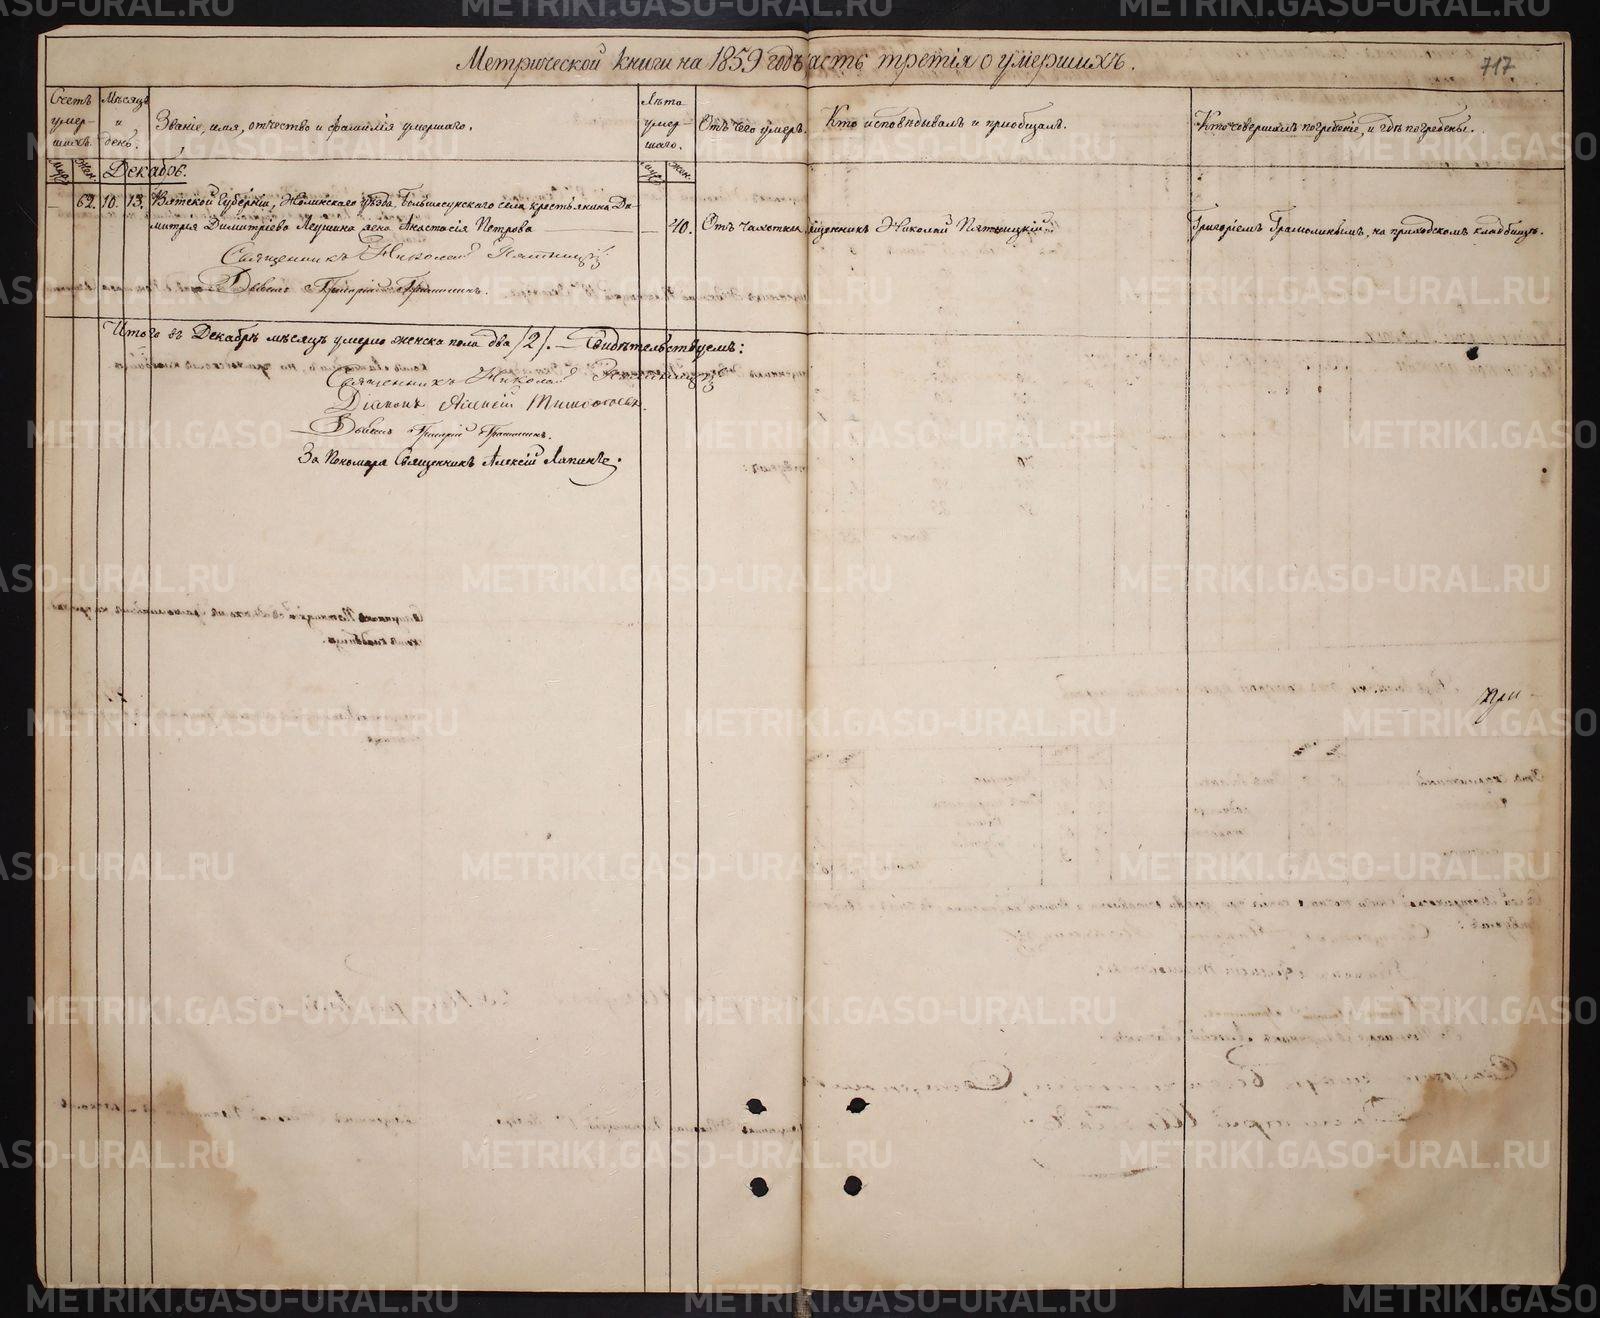 Метрической книги на 1859 годъ часть третія о умершихъ.
717
Счетъ умер-шихъ.
Мѣсяцъ и день.
Званіе, имя, отчество и фамилія умершаго.
Лѣта умер-шаго.
Отъ чего умеръ.
Кто исповѣдывалъ и пріобщалъ.
Кто совершалъ погребеніе, и гдѣ погребены.
муж. жен.
Декабрь.
муж. жен.
62. 10. 13. Вятской Губерніи, Нолинскаго уѣзда, села крестьянина Ди-
митрія Димитріева жена Анастасія Петрова — 40. Отъ чахотки Священникъ Николай Пятницкій Григоріемъ Грамолинымъ, на приходскомъ кладбищѣ.
Священникъ Николай Пятницкій
Дьячекъ Григорій Грамолинъ.
Итого въ Декабрѣ мѣсяцѣ умерло женска пола два /2/. — Свидѣтельствуемъ:
Священникъ Николай Пятницкій
Діаконъ Алексій
Дьячекъ Григорій Грамолинъ.
За Пономаря Священникъ Алексій Лапинъ.
METRIKI.GASO-URAL.RU